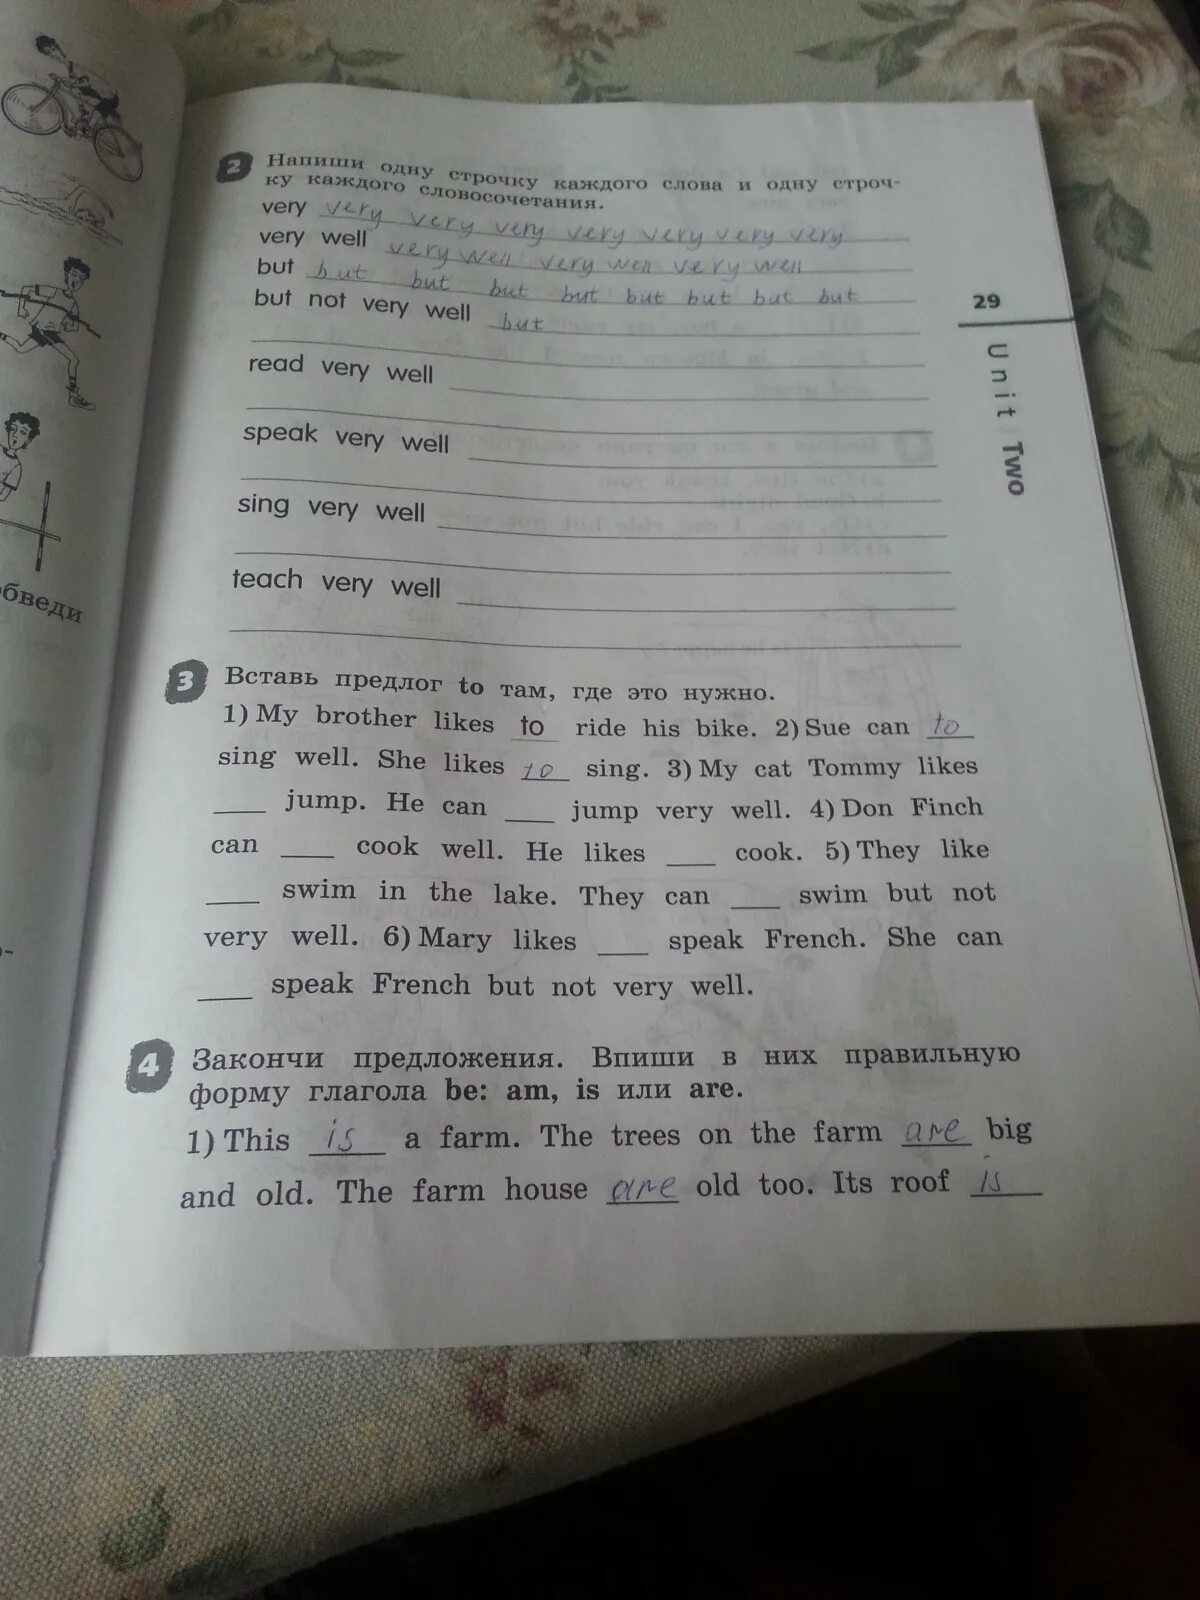 2 Напиши одну строчку каждого слова и одну строч-
ку каждого словосочетания.
very very very very very very very very
very well very well very well very well
but but but but but but but but but
but not very well but
29
read very well
Unit Two
speak very well
sing very well
teach very well
обведи
3 Вставь предлог to там, где это нужно.
1) My brother likes to ride his bike. 2) Sue can to
sing well. She likes to sing. 3) My cat Tommy likes
___ jump. He can ___ jump very well. 4) Don Finch
can ___ cook well. He likes ___ cook. 5) They like
___ swim in the lake. They can ___ swim but not
very well. 6) Mary likes ___ speak French. She can
___ speak French but not very well.
4 Закончи предложения. Впиши в них правильную
форму глагола be: am, is или are.
1) This is a farm. The trees on the farm are big
and old. The farm house are old too. Its roof is